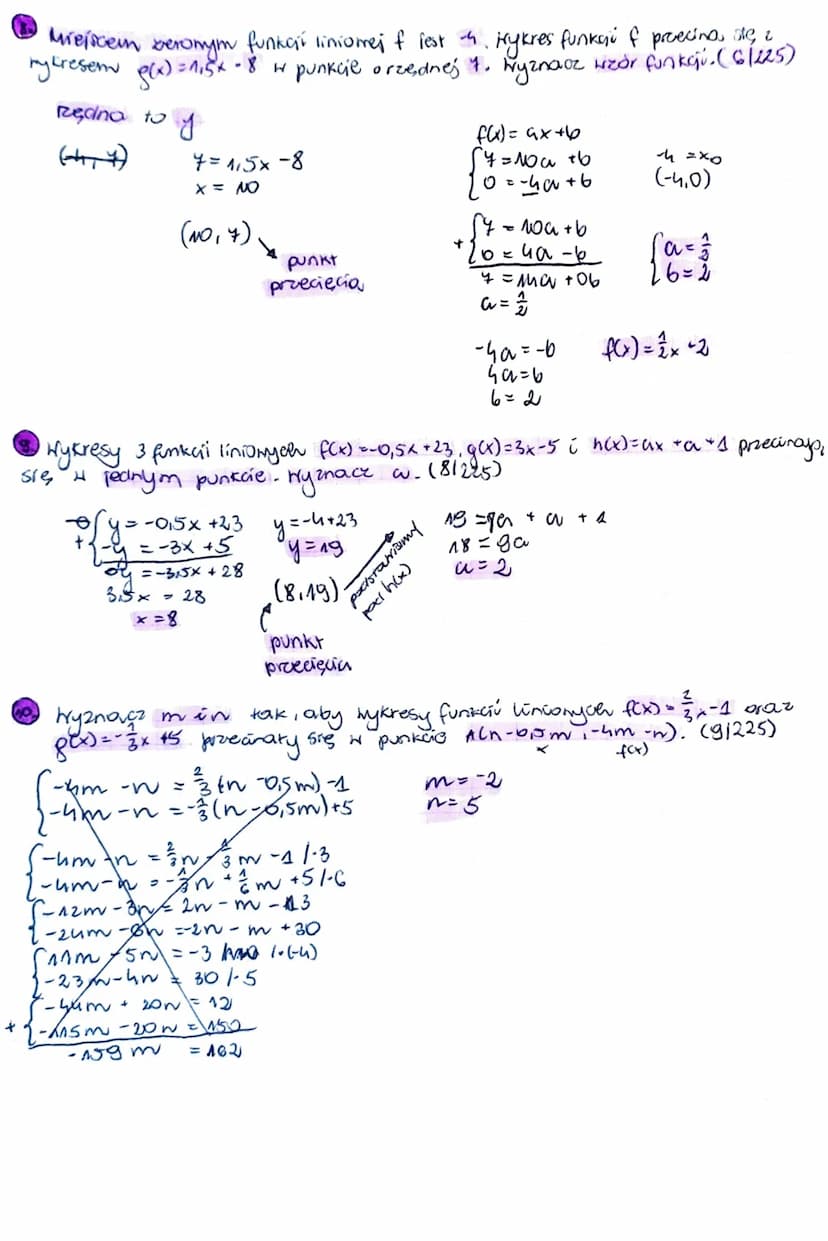 8. Miejscem zerowym funkcji liniowej f jest -4. Wykres funkcji f przecina się z
wykresem g(x)=1,5x-8 w punkcie o rzędnej 7. Wyznacz wzór funkcji. (6/225)
rzędna to y
(-4, 7)
7 = 1,5x - 8
x = 10
(10, 7)
punkt
przecięcia
f(x) = ax+b
{7 = 10a + b
{0 = -4a + b
-4 = x₀
(-4,0)
{7 = 10a + b
+{0 = 4a - b
7 = 14a + 0b
a = 1/2
{a = 1/2
{b = 2
-4a = -b
4a = b
b = 2
f(x) = 1/2x + 2
9. Wykresy 3 funkcji liniowych f(x) = -0,5x + 23, g(x) = 3x - 5 i h(x) = ax + a + 1 przecinają
się w jednym punkcie. Wyznacz a. (8/225)
{y = -0,5x + 23
+{-y = -3x + 5
0y = -3,5x + 28
3,5x = 28
x = 8
y = -4 + 23
y = 19
(8,19)
punkt
przecięcia
podstawiamy
pod h(x)
19 = 8a + a + 1
18 = 9a
a = 2
10. Wyznacz m i n tak, aby wykresy funkcji liniowych f(x) = 2/3x - 1 oraz
g(x) = -1/3x + 5 przecinały się w punkcie A(n - 0,5m, -4m - n). (9/225)
x f(x)
{-4m - n = 2/3(n - 0,5m) - 1
{-4m - n = -1/3(n - 0,5m) + 5
m = -2
n = 5
{-4m - n = 2/3n - 1/3m - 1 /·3
{-4m - n = -1/3n + 1/6m + 5 /·6
{-12m - 3n = 2n - m - 3
{-24m - 6n = -2n - m + 30
{11m - 5n = -3 /·(-4)
{-23m - 4n = 30 /·5
{-44m + 20n = 12
+{-115m - 20n = 150
-159m = 162